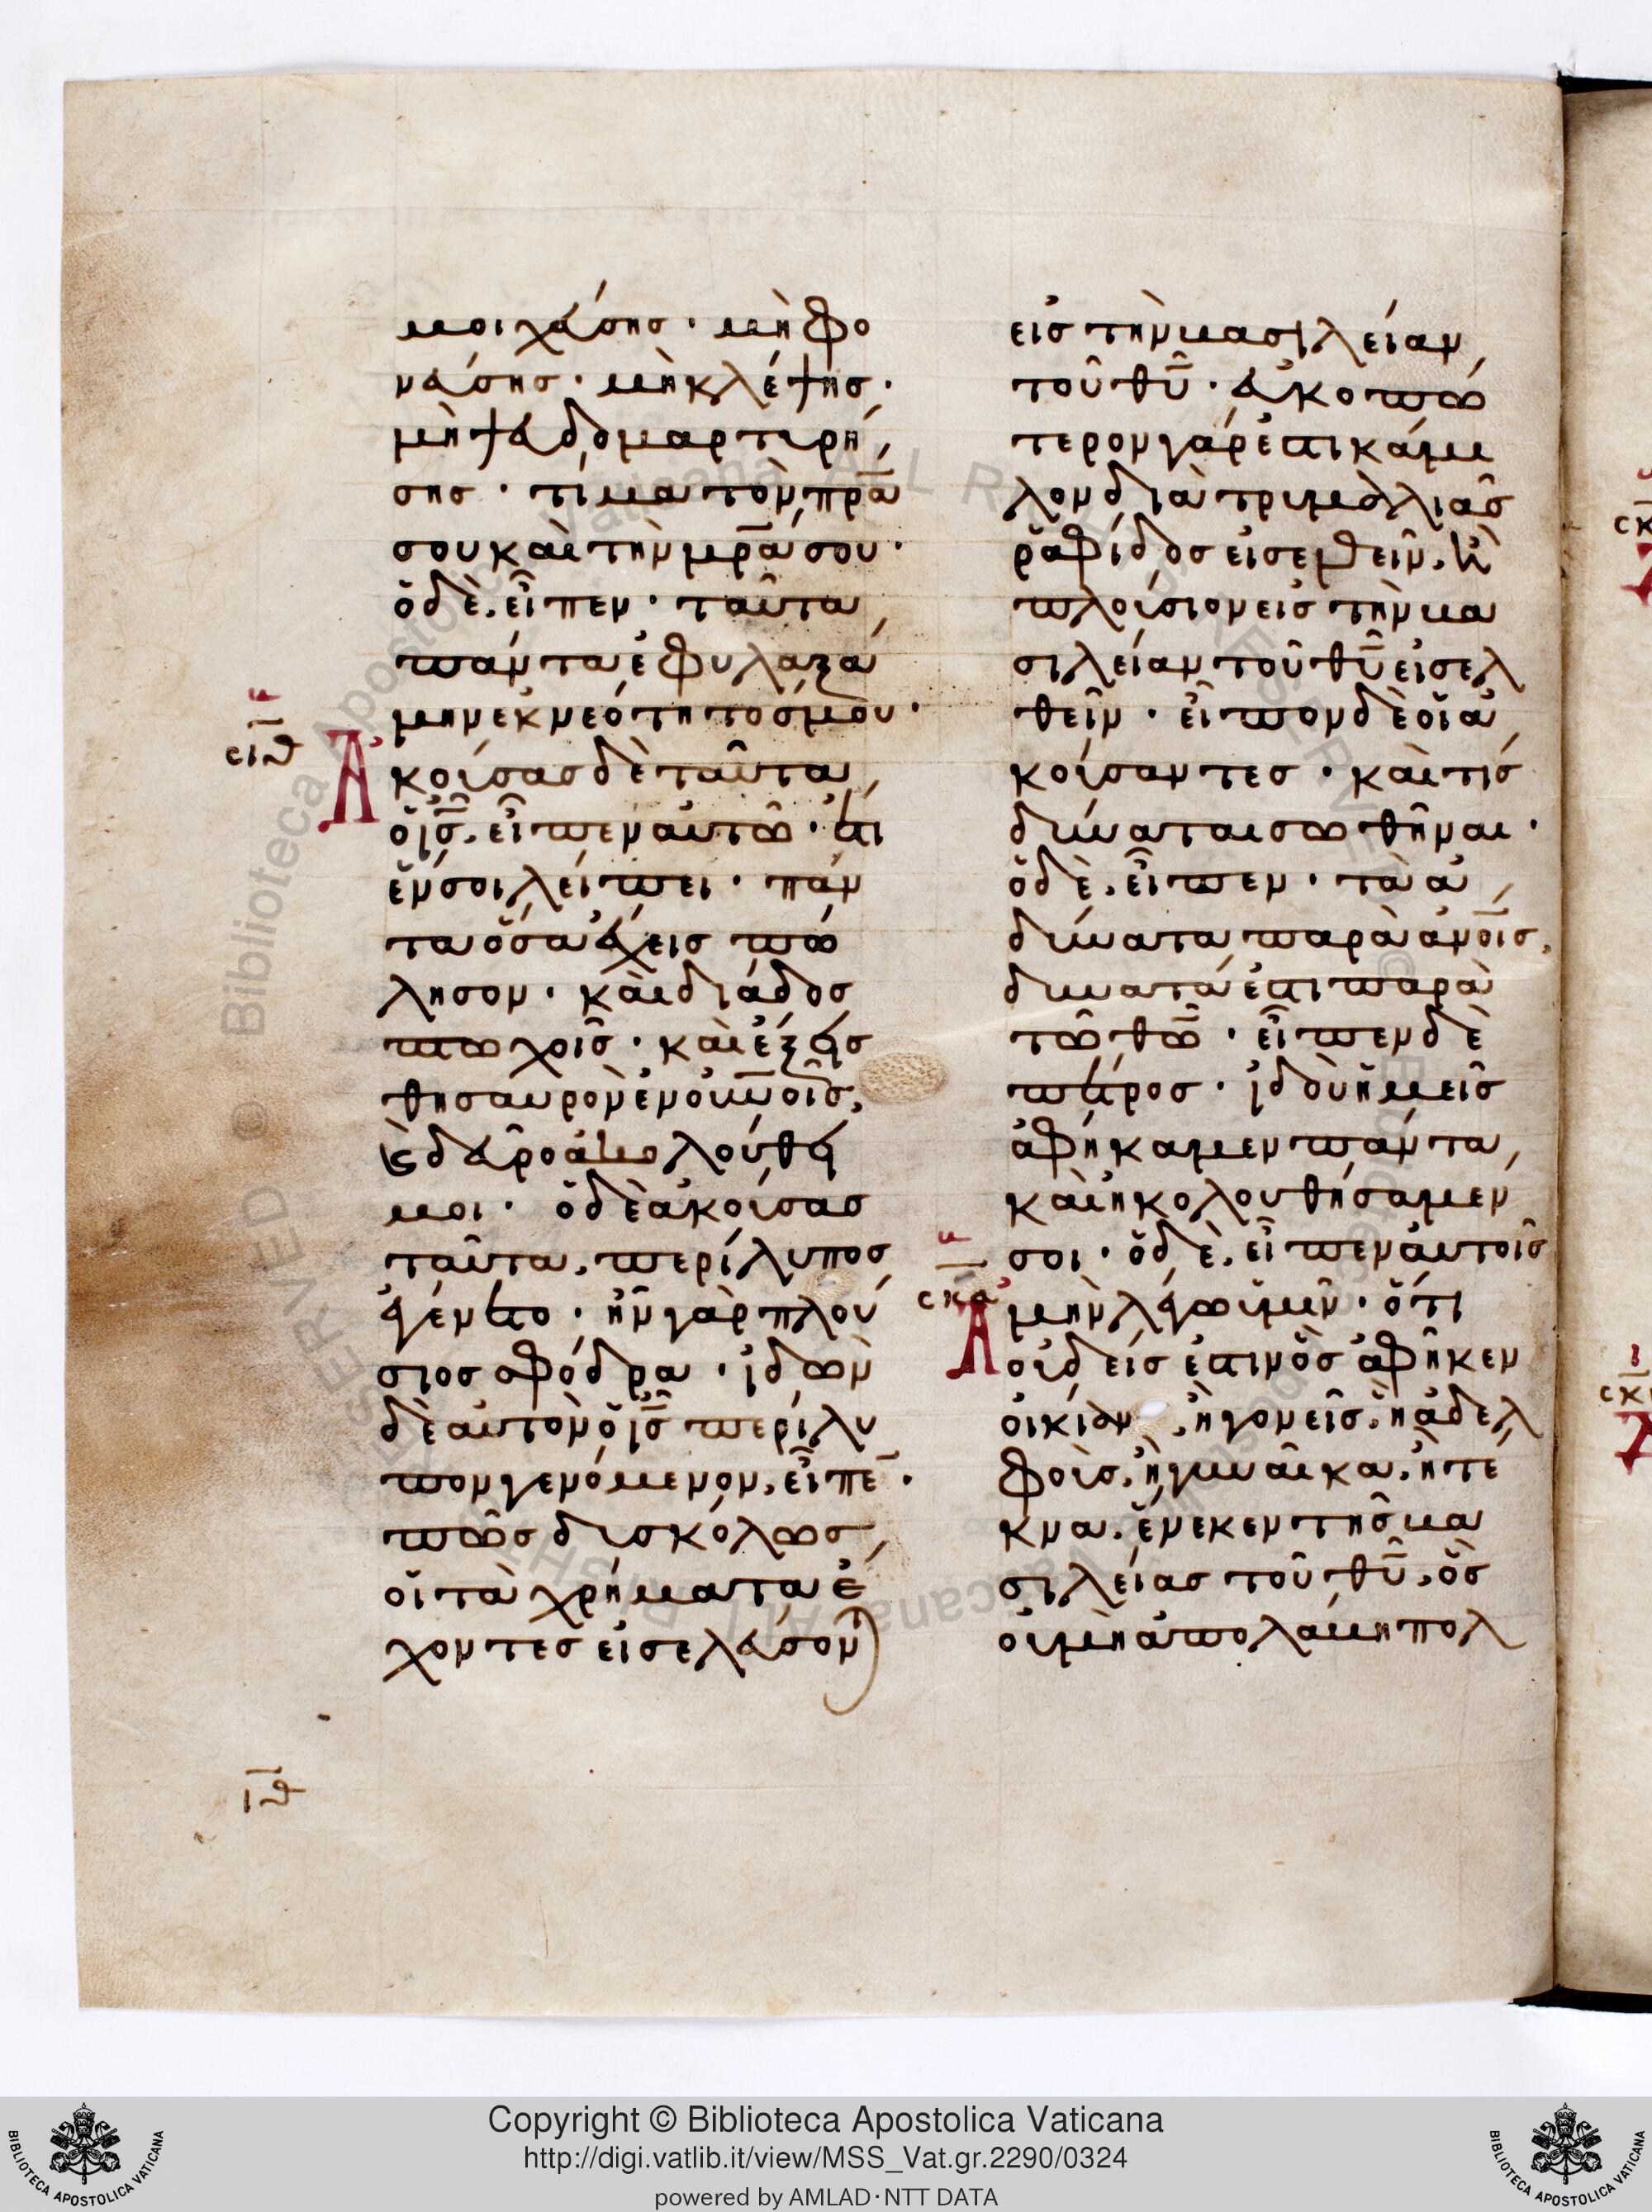 μοιχεύσης· μὴ φο
νεύσης· μὴ κλέψης·
μὴ ψευδομαρτυρή
σης· τίμα τὸν π̅ρ̅α̅
σου καὶ τὴν μ̅ρ̅α̅ σου·
ὁ δὲ, εἶπεν· ταῦτα
πάντα ἐφυλαξά
μην ἐκ νεότητός μου·
σ̅ι̅θ̅
Ἀ
κούσας δὲ ταῦτα
ὁ ι̅ς̅, εἶπεν αὐτῶ· ἔτι
ἕν σοι λείπει· πάν
τα ὅσα ἔχεις πώ
λησον· καὶ διάδος
πτωχοῖς· καὶ ἕξεις
θησαυρὸν ἐν ο̅υ̅ν̅οῖς,
καὶ δεῦρο ἀκολούθει
μοι· ὁ δὲ ἀκούσας
ταῦτα, περίλυπος
ἐγένετο· ἦν γὰρ πλού
σιος σφόδρα· ἰδὼν
δὲ αὐτὸν ὁ ι̅ς̅ περίλυ
πον γενόμενον, εἶπε̅·
πῶς δυσκόλως
οἱ τὰ χρήματα ἔ
χοντες εἰσελεύσον)
ι̅θ̅
εἰς τὴν βασιλείαν
τοῦ θ̅υ̅· εὐκοπώ
τερον γάρ ἐστι κάμη
λον διὰ τρυμαλιᾶς
ῥαφίδος εἰσελθεῖν, ἢ
πλούσιον εἰς τὴν βα
σιλείαν τοῦ θ̅υ̅ εἰσελ
θεῖν· εἶπον δὲ οἱ ἀ
κούσαντες· καὶ τίς
δύναται σωθῆναι·
ὁ δὲ, εἶπεν· τὰ ἀ
δύνατα παρὰ ἀ̅ν̅ο̅ι̅ς,
δυνατά ἐστι παρὰ
τῶ θ̅ω̅· εἶπεν δὲ
πέτρος· ἰδοὺ ἡμεῖς
ἀφήκαμεν πάντα,
καὶ ἠκολουθήσαμέν
σοι· ὁ δὲ, εἶπεν αὐτοῖς
σ̅κ̅α̅
Ἀ
μὴν λέγω ὑμῖν· ὅτι
οὐδείς ἐστιν ὃς ἀφῆκεν
οἰκίαν, ἢ γονεῖς, ἢ ἀδελ
φοὺς, ἢ γυναῖκα, ἢ τέ
κνα, ἕνεκεν τῆς βα
σιλείας τοῦ θ̅υ̅, ὃς
οὐ μὴ ἀπολάβη πολ
Copyright © Biblioteca Apostolica Vaticana
http://digi.vatlib.it/view/MSS_Vat.gr.2290/0324
powered by AMLAD·NTT DATA
BIBLIOTECA APOSTOLICA VATICANA
BIBLIOTECA APOSTOLICA VATICANA